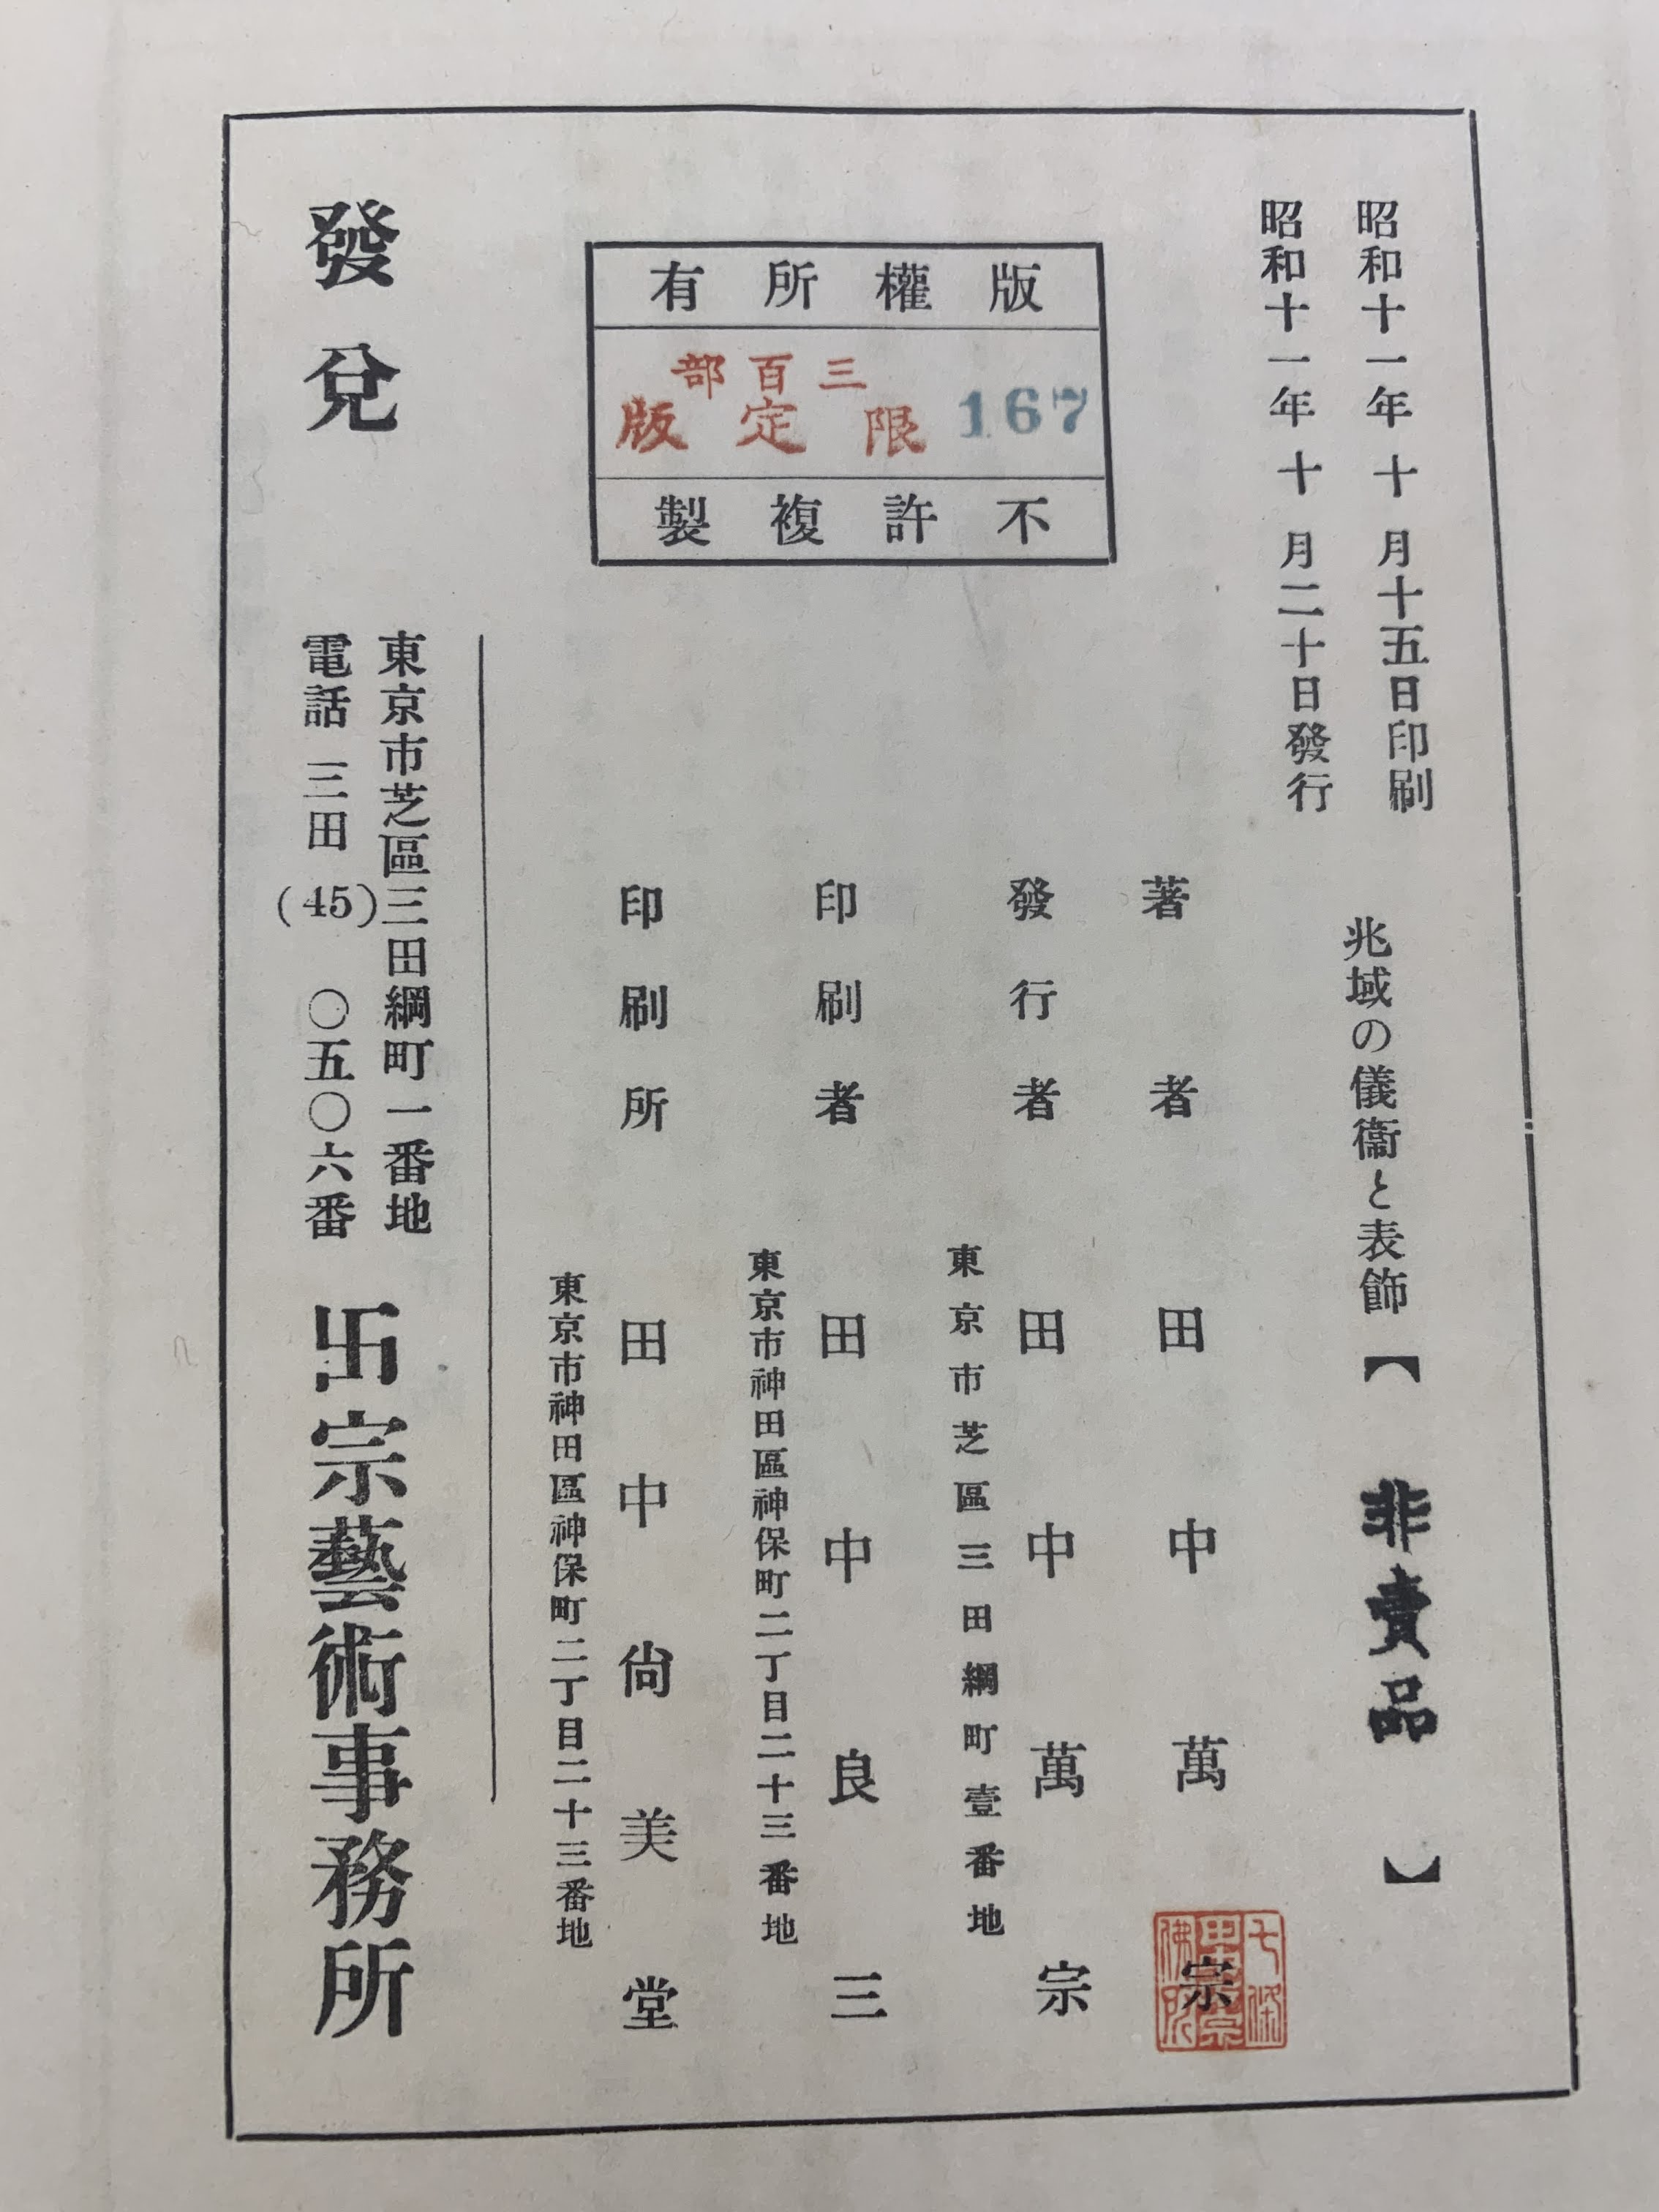 昭和十一年十月十五日印刷
昭和十一年十月二十日發行
兆域の儀衞と表飾【非賣品】
版權所有
三百部
限定版
167
不許複製
著者 田中萬宗
發行者 田中萬宗
東京市芝區三田綱町壹番地
印刷者 田中良三
東京市神田區神保町二丁目二十三番地
印刷所 田中尙美堂
東京市神田區神保町二丁目二十三番地
發兌
東京市芝區三田綱町一番地
電話三田(45)〇五〇六番
卍宗藝術事務所